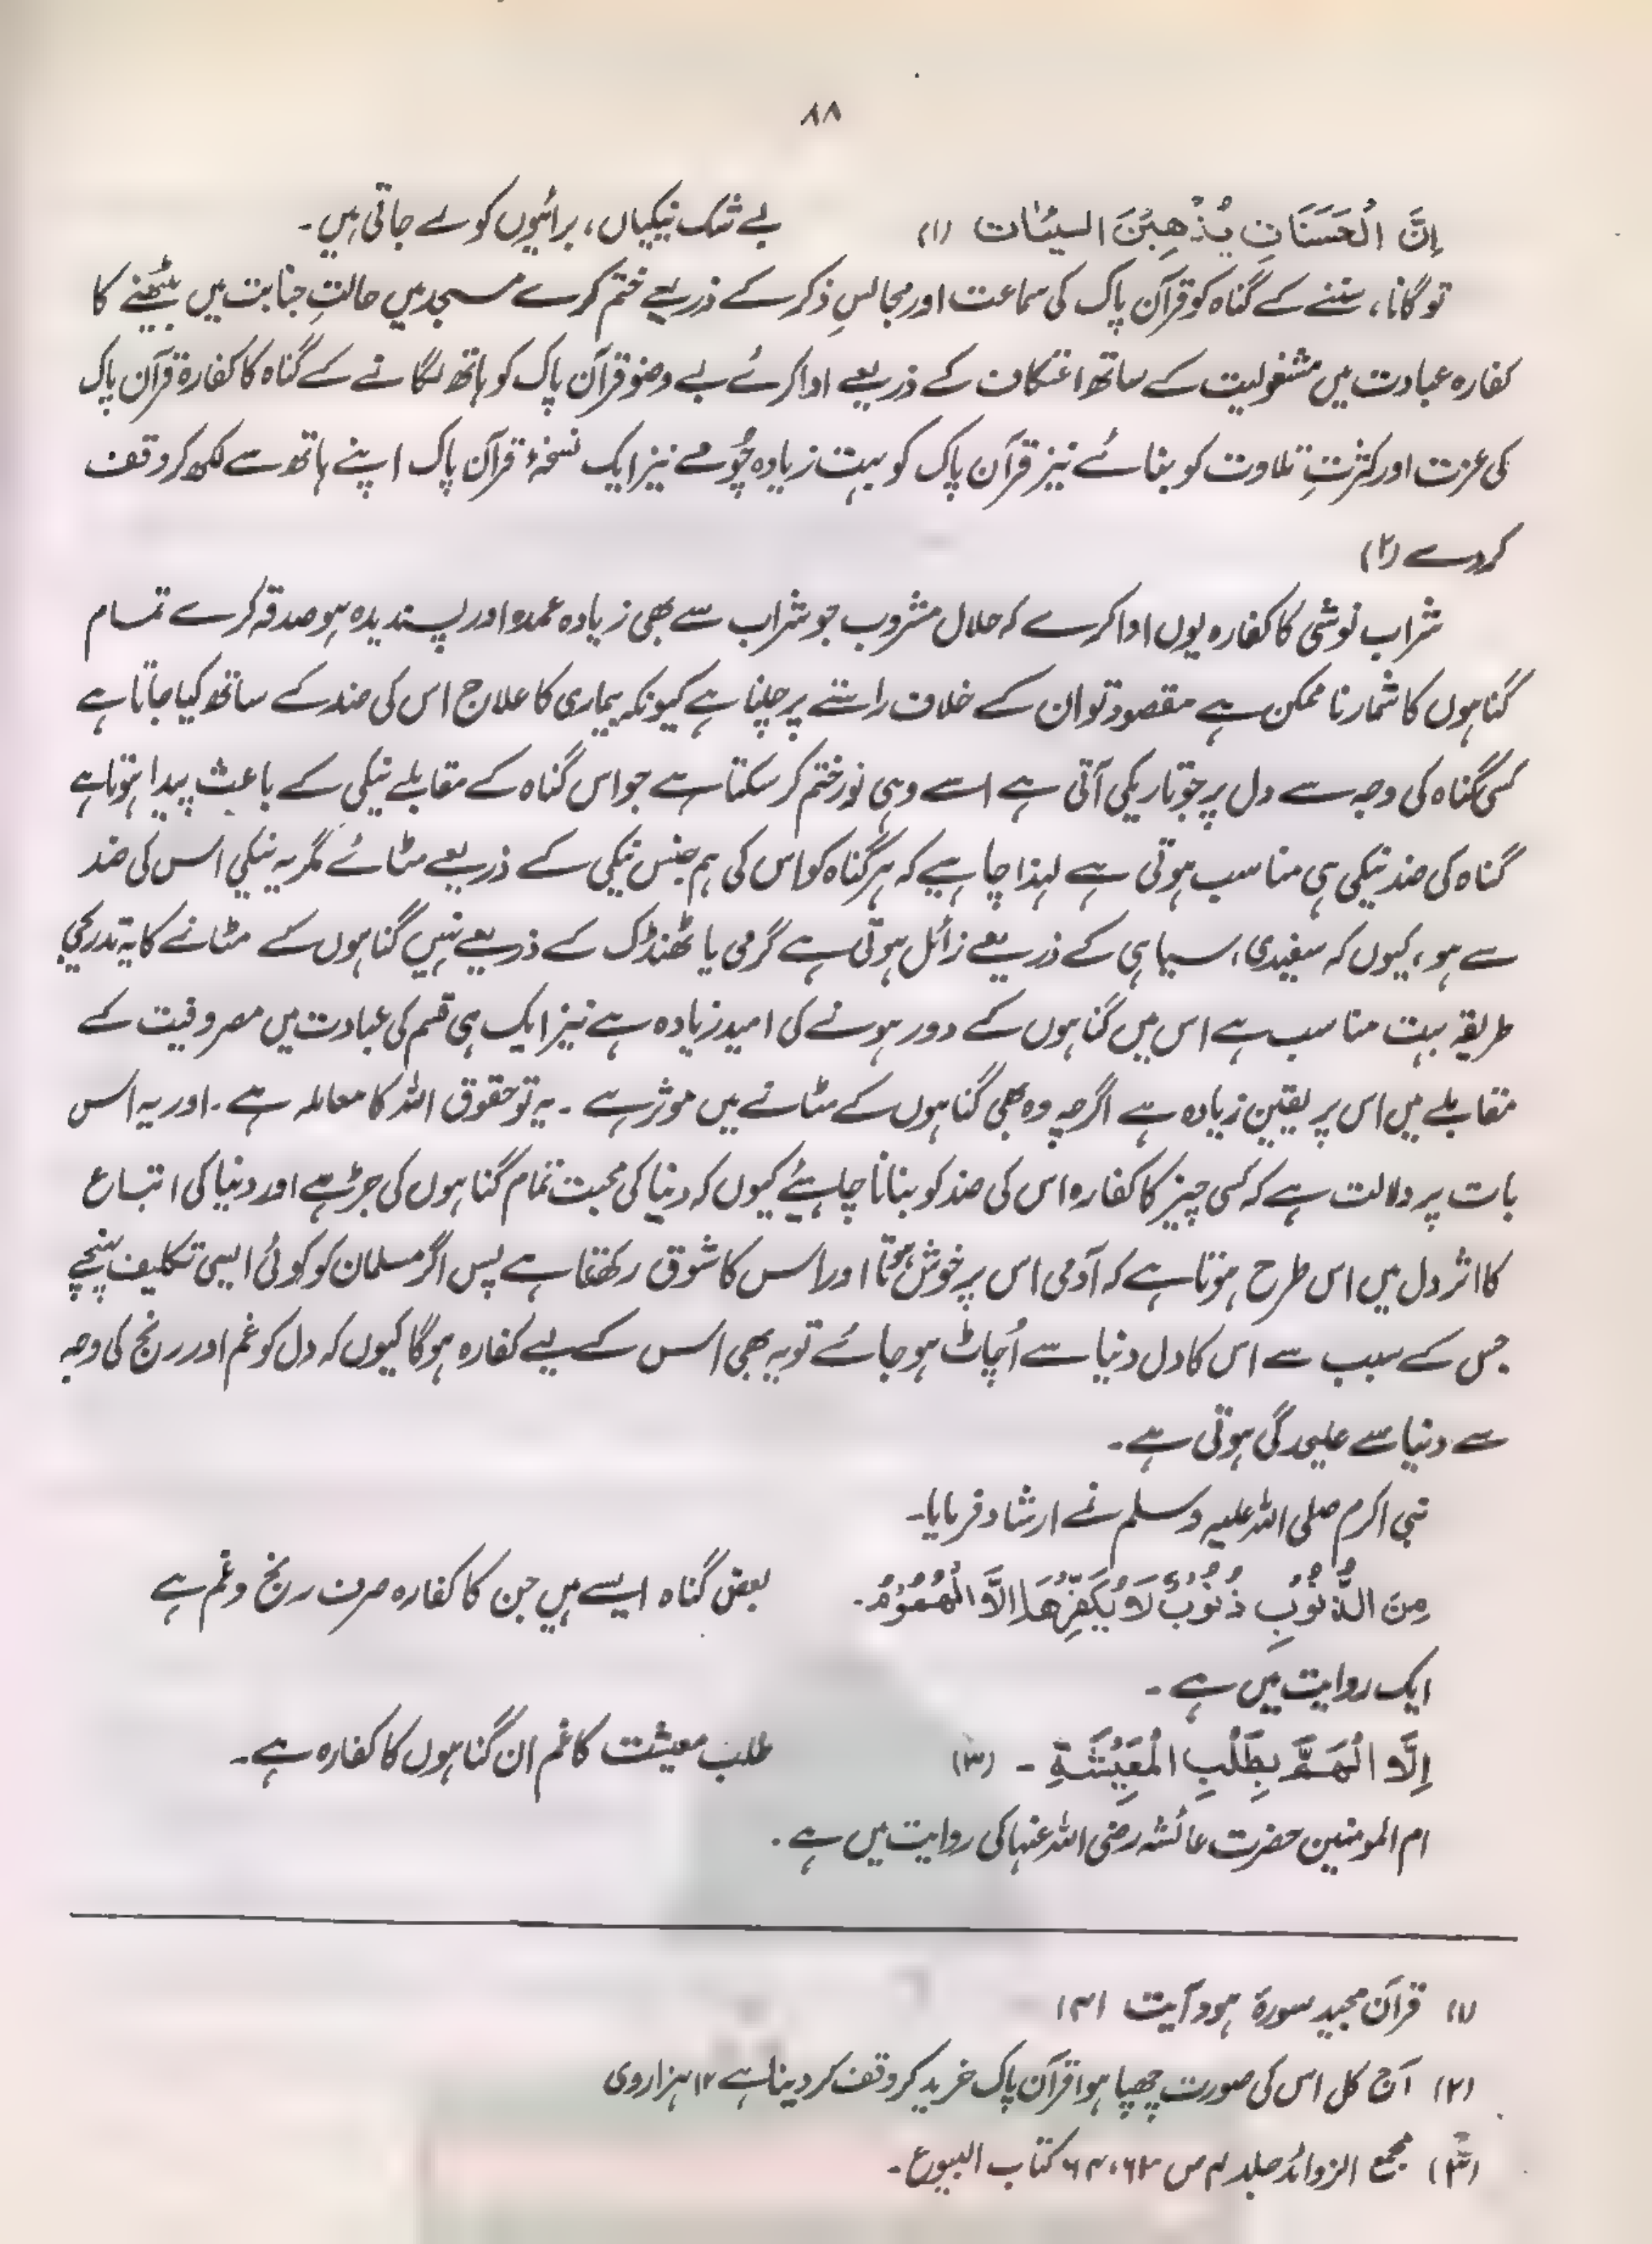 ۸۸
اِنَّ الْحَسَنَاتِ یُذْهِبْنَ السیئات (۱) بے شک نیکیاں، برائیوں کو لے جاتی ہیں۔
تو گانا، سننے کے گناہ کو قرآن پاک کی سماعت اور مجالسِ ذکر کے ذریعے ختم کرے مسجد میں حالتِ جنابت میں بیٹھنے کا
کفارہ عبادت میں مشغولیت کے ساتھ اعتکاف کے ذریعے ادا کرے بے وضو قرآن پاک کو ہاتھ لگانے کے گناہ کا کفارۃ قرآن پاک
کی عزت اور کثرتِ تلاوت کو بنائے نیز قرآن پاک کو بہت زیادہ چُومے نیز ایک نسخۂ قرآن پاک اپنے ہاتھ سے لکھ کر وقف
کردے (۲)
شراب نوشی کا کفارہ یوں ادا کرے کہ حلال مشروب جو شراب سے بھی زیادہ عمدہ اور پسندیدہ ہو صدقہ کرے تمام
گناہوں کا شمار ناممکن ہے مقصود تو ان کے خلاف راستے پر چلنا ہے کیونکہ بیماری کا علاج اس کی ضد کے ساتھ کیا جاتا ہے
کسی گناہ کی وجہ سے دل پر جو تاریکی آتی ہے اسے وہی نور ختم کر سکتا ہے جو اس گناہ کے مقابلے نیکی کے باعث پیدا ہوتا ہے
گناہ کی ضد نیکی ہی مناسب ہوتی ہے لہذا چاہیے کہ ہر گناہ کو اس کی ہم جنس نیکی کے ذریعے مٹائے مگر یہ نیکی اس کی ضد
سے ہو، کیوں کہ سفیدی، سیاہی کے ذریعے زائل ہوتی ہے گرمی یا ٹھنڈک کے ذریعے نہیں گناہوں کے مٹانے کا یہ تدریجی
طریقہ بہت مناسب ہے اس میں گناہوں کے دور ہونے کی امید زیادہ ہے نیز ایک ہی قسم کی عبادت میں مصروفیت کے
مقابلے میں اس پر یقین زیادہ ہے اگرچہ وہ بھی گناہوں کے مٹانے میں موثر ہے۔ یہ تو حقوق اللہ کا معاملہ ہے۔ اور یہ اس
بات پر دلالت ہے کہ کسی چیز کا کفارہ اس کی ضد کو بنانا چاہیئے کیوں کہ دنیا کی محبت تمام گناہوں کی جڑ ہے اور دنیا کی اتباع
کا اثر دل میں اس طرح ہوتا ہے کہ آدمی اس پر خوش ہوتا اور اس کا شوق رکھتا ہے پس اگر مسلمان کو کوئی ایسی تکلیف پہنچے
جس کے سبب سے اس کا دل دنیا سے اُچاٹ ہو جائے تو یہ بھی اس کے لیے کفارہ ہوگا کیوں کہ دل کو غم اور رنج کی وجہ
سے دنیا سے علیحدگی ہوتی ہے۔
نبی اکرم صلی اللہ علیہ وسلم نے ارشاد فرمایا۔
مِنَ الذُّنُوْبِ ذُنُوْبٌ لَا یُکَفِّرُهَا اِلَّا الْهُمُوْمُ۔ بعض گناہ ایسے ہیں جن کا کفارہ صرف رنج و غم ہے
ایک روایت میں ہے۔
اِلَّا الْهَمَّ بِطَلْبِ الْمَعِیْشَةِ - (۳) طلب معیشت کا غم ان گناہوں کا کفارہ ہے۔
ام المومنین حضرت عائشہ رضی اللہ عنہا کی روایت میں ہے۔
(۱) قرآن مجید سورۃ ہود آیت ۱۱۴
(۲) آج کل اس کی صورت چھپا ہوا قرآن پاک خرید کر وقف کر دینا ہے ۱۲ ہزاروی
(۳) مجمع الزوائد جلد ۴ ص ۶۳، ۶۴ کتاب البیوع۔